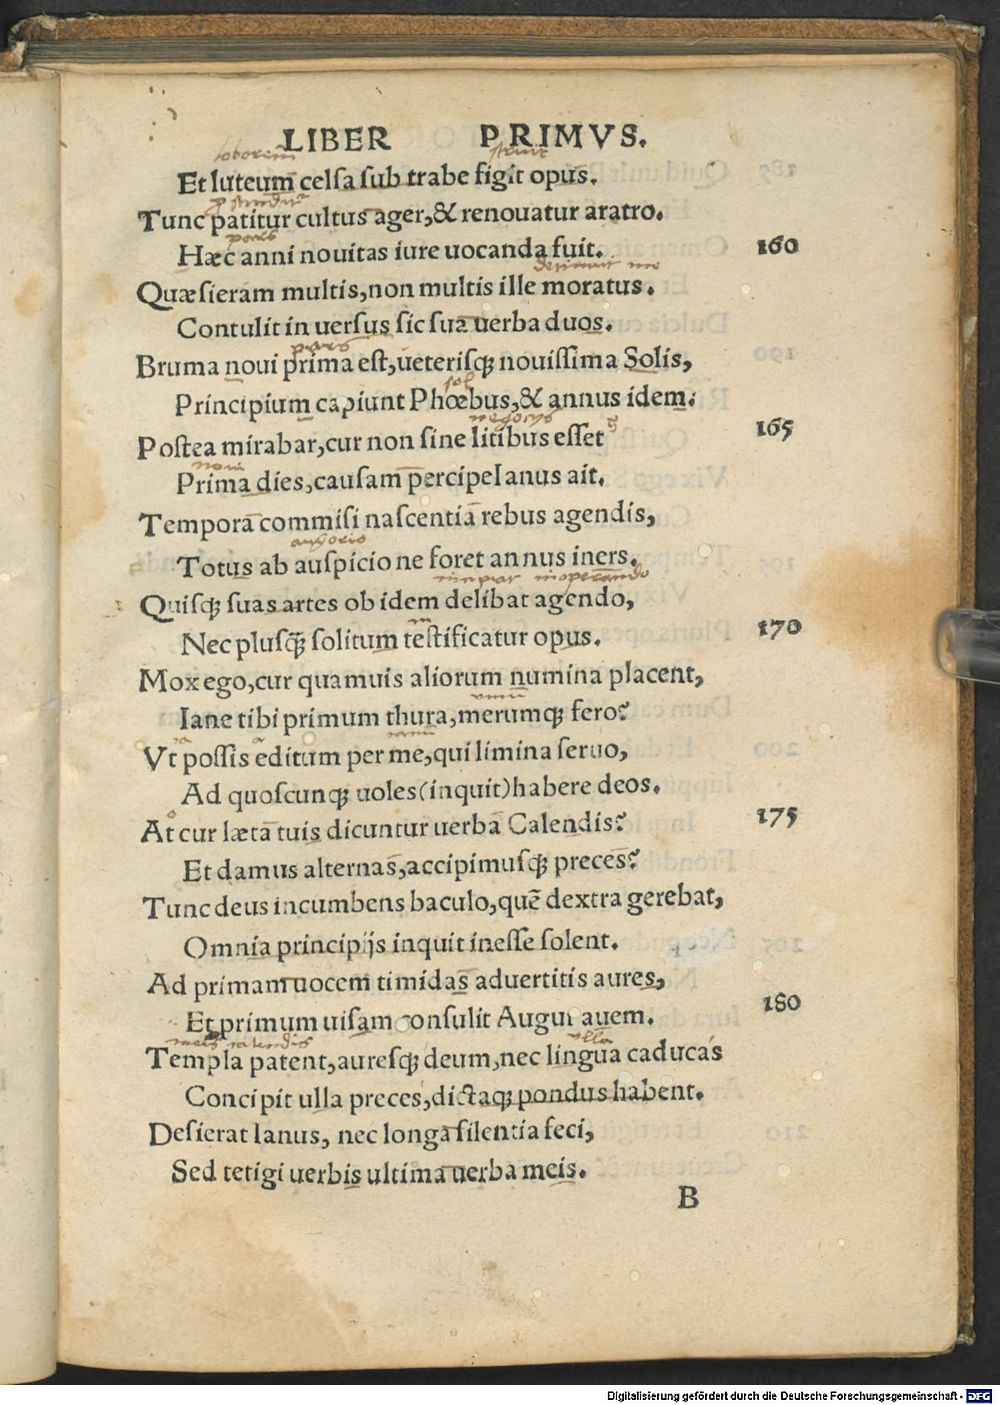 LIBER PRIMVS.
Et luteum celsa sub trabe figit opus.
Tunc patitur cultus ager,& renouatur aratro.
Hæc anni nouitas iure uocanda fuit. 160
Quæsieram multis,non multis ille moratus.
Contulit in uersus sic sua uerba duos.
Bruma noui prima est,ueterisq; nouissima Solis,
Principium capiunt Phœbus,& annus idem.
Postea mirabar,cur non sine litibus esset 165
Prima dies,causam percipe Ianus ait.
Tempora commisi nascentia rebus agendis,
Totus ab auspicio ne foret annus iners.
Quisq; suas artes ob idem delibat agendo,
Nec plusq̃ solitum testificatur opus. 170
Mox ego,cur quamuis aliorum numina placem,
Iane tibi primum thura,merumq; fero?
Vt possis editum per me,qui limina seruo,
Ad quoscunq; uoles(inquit)habere deos.
At cur læta tuis dicuntur uerba Calendis? 175
Et damus alternas,accipimusq; preces?
Tunc deus incumbens baculo,quẽ dextra gerebat,
Omnia principijs inquit inesse solent.
Ad primam uocem timidas aduertitis aures,
Et primum uisam consulit Augur auem. 180
Templa patent,auresq; deum,nec lingua caducas
Concipit ulla preces,dictaq; pondus habent.
Desierat Ianus, nec longa silentia feci,
Sed tetigi uerbis ultima uerba meis.
B
Digitalisierung gefördert durch die Deutsche Forschungsgemeinschaft - DFG